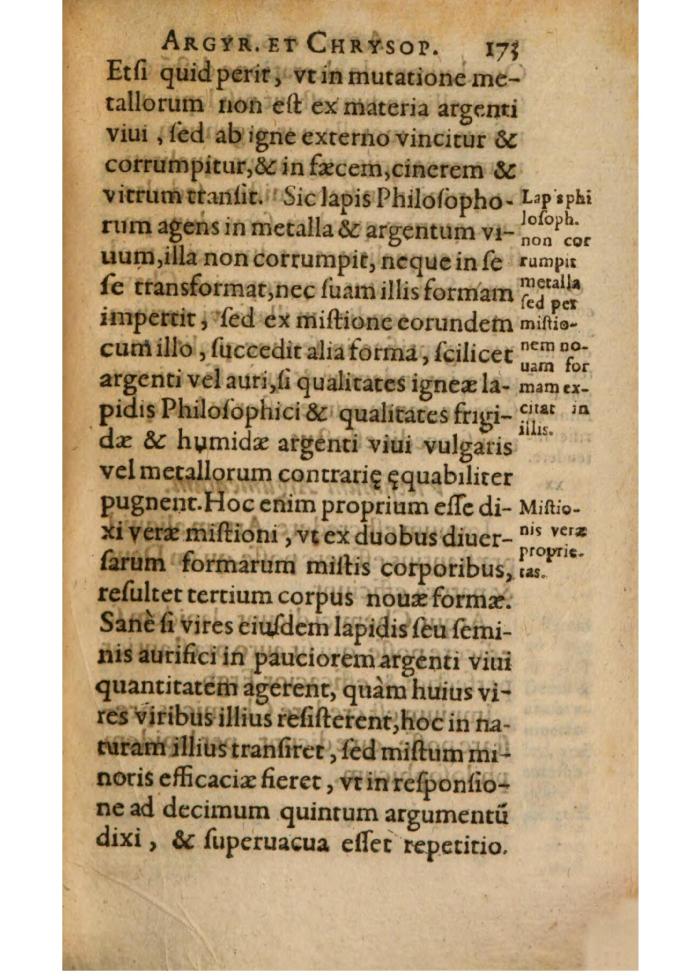 ARGYR. ET CHRYSOP. 173
Etſi quid perit, vt in mutatione me-
tallorum non eſt ex materia argenti
viui, ſed ab igne externo vincitur &
corrumpitur, & in fæcem, cinerem &
vitrum tranſit. Sic lapis Philoſopho-
rum agens in metalla & argentum vi-
uum, illa non corrumpit, neque in ſe
ſe transformat, nec ſuam illis formam
impertit, ſed ex miſtione eorundem
cum illo, ſuccedit alia forma, ſcilicet
argenti vel auri, ſi qualitates igneæ la-
pidis Philoſophici & qualitates frigi-
dæ & humidæ argenti viui vulgaris
vel metallorum contrarię ęquabiliter
pugnent. Hoc enim proprium eſſe di-
xi veræ miſtioni, vt ex duobus diuer-
ſarum formarum miſtis corporibus,
reſultet tertium corpus nouæ formæ.
Sanè ſi vires eiuſdem lapidis ſeu ſemi-
nis aurifici in pauciorem argenti viui
quantitatem agerent, quàm huius vi-
res viribus illius reſiſterent, hoc in na-
turam illius tranſiret, ſed miſtum mi-
noris efficaciæ fieret, vt in reſponſio-
ne ad decimum quintum argumentū
dixi, & ſuperuacua eſſet repetitio.
Lap's phi
loſoph.
non cor
rumpit
metalla
ſed per
miſtio-
nem no-
uam for
mam ex-
citat in
illis.
Miſtio-
nis veræ
proprie-
tas.